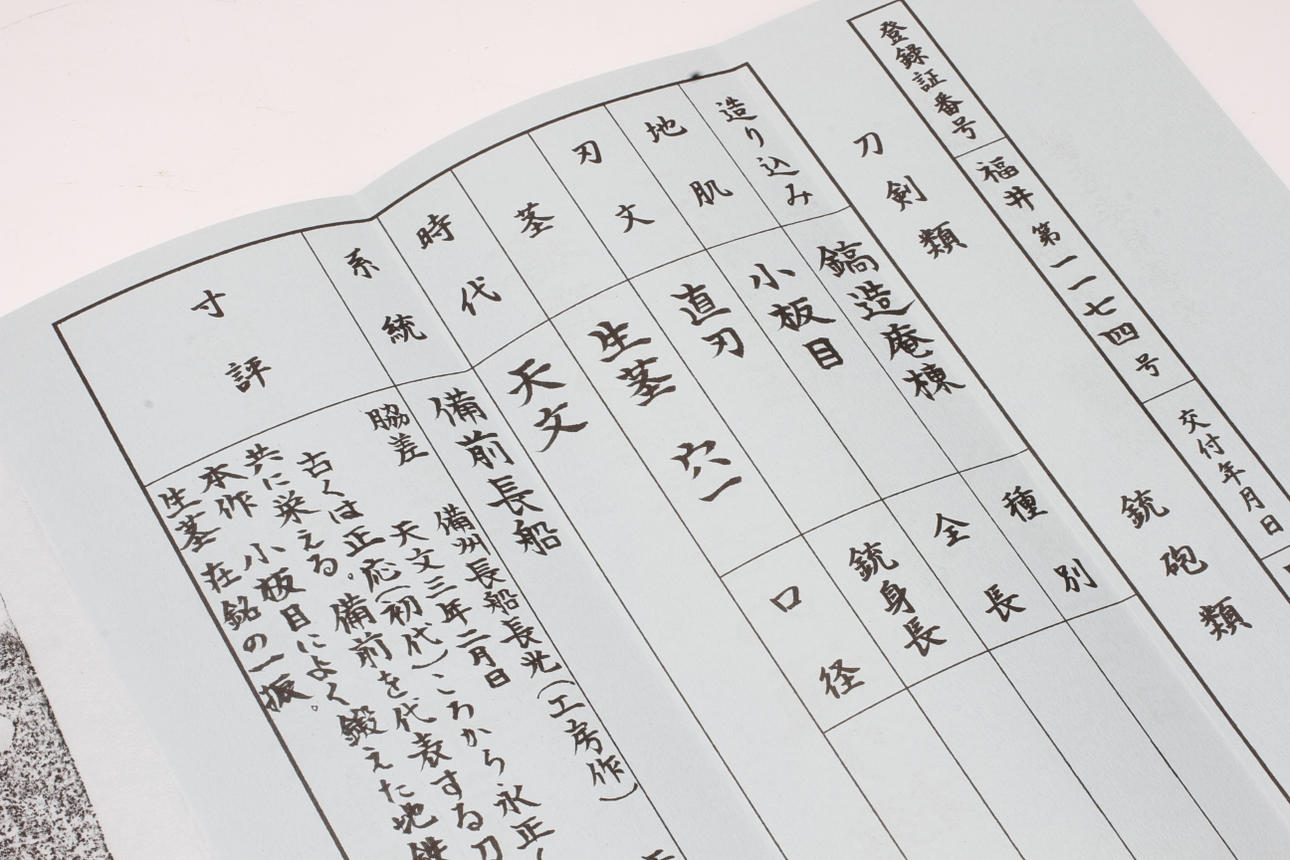 登録証番号
福井 第一一七四号
交付年月日
刀剣類
銃砲類
造り込み
鎬造庵棟
地肌
小板目
刃文
直刃
茎
生茎 穴一
時代
天文
系統
備前長船
種別
全長
銃身長
口径
寸評
脇差 備州長船長光(工房作)
天文三年二月日
古くは正応(初代)ころから永正(
共に栄える。備前を代表する刀
本作 小板目によく鍛えた地鉄
生茎 在銘の一振。